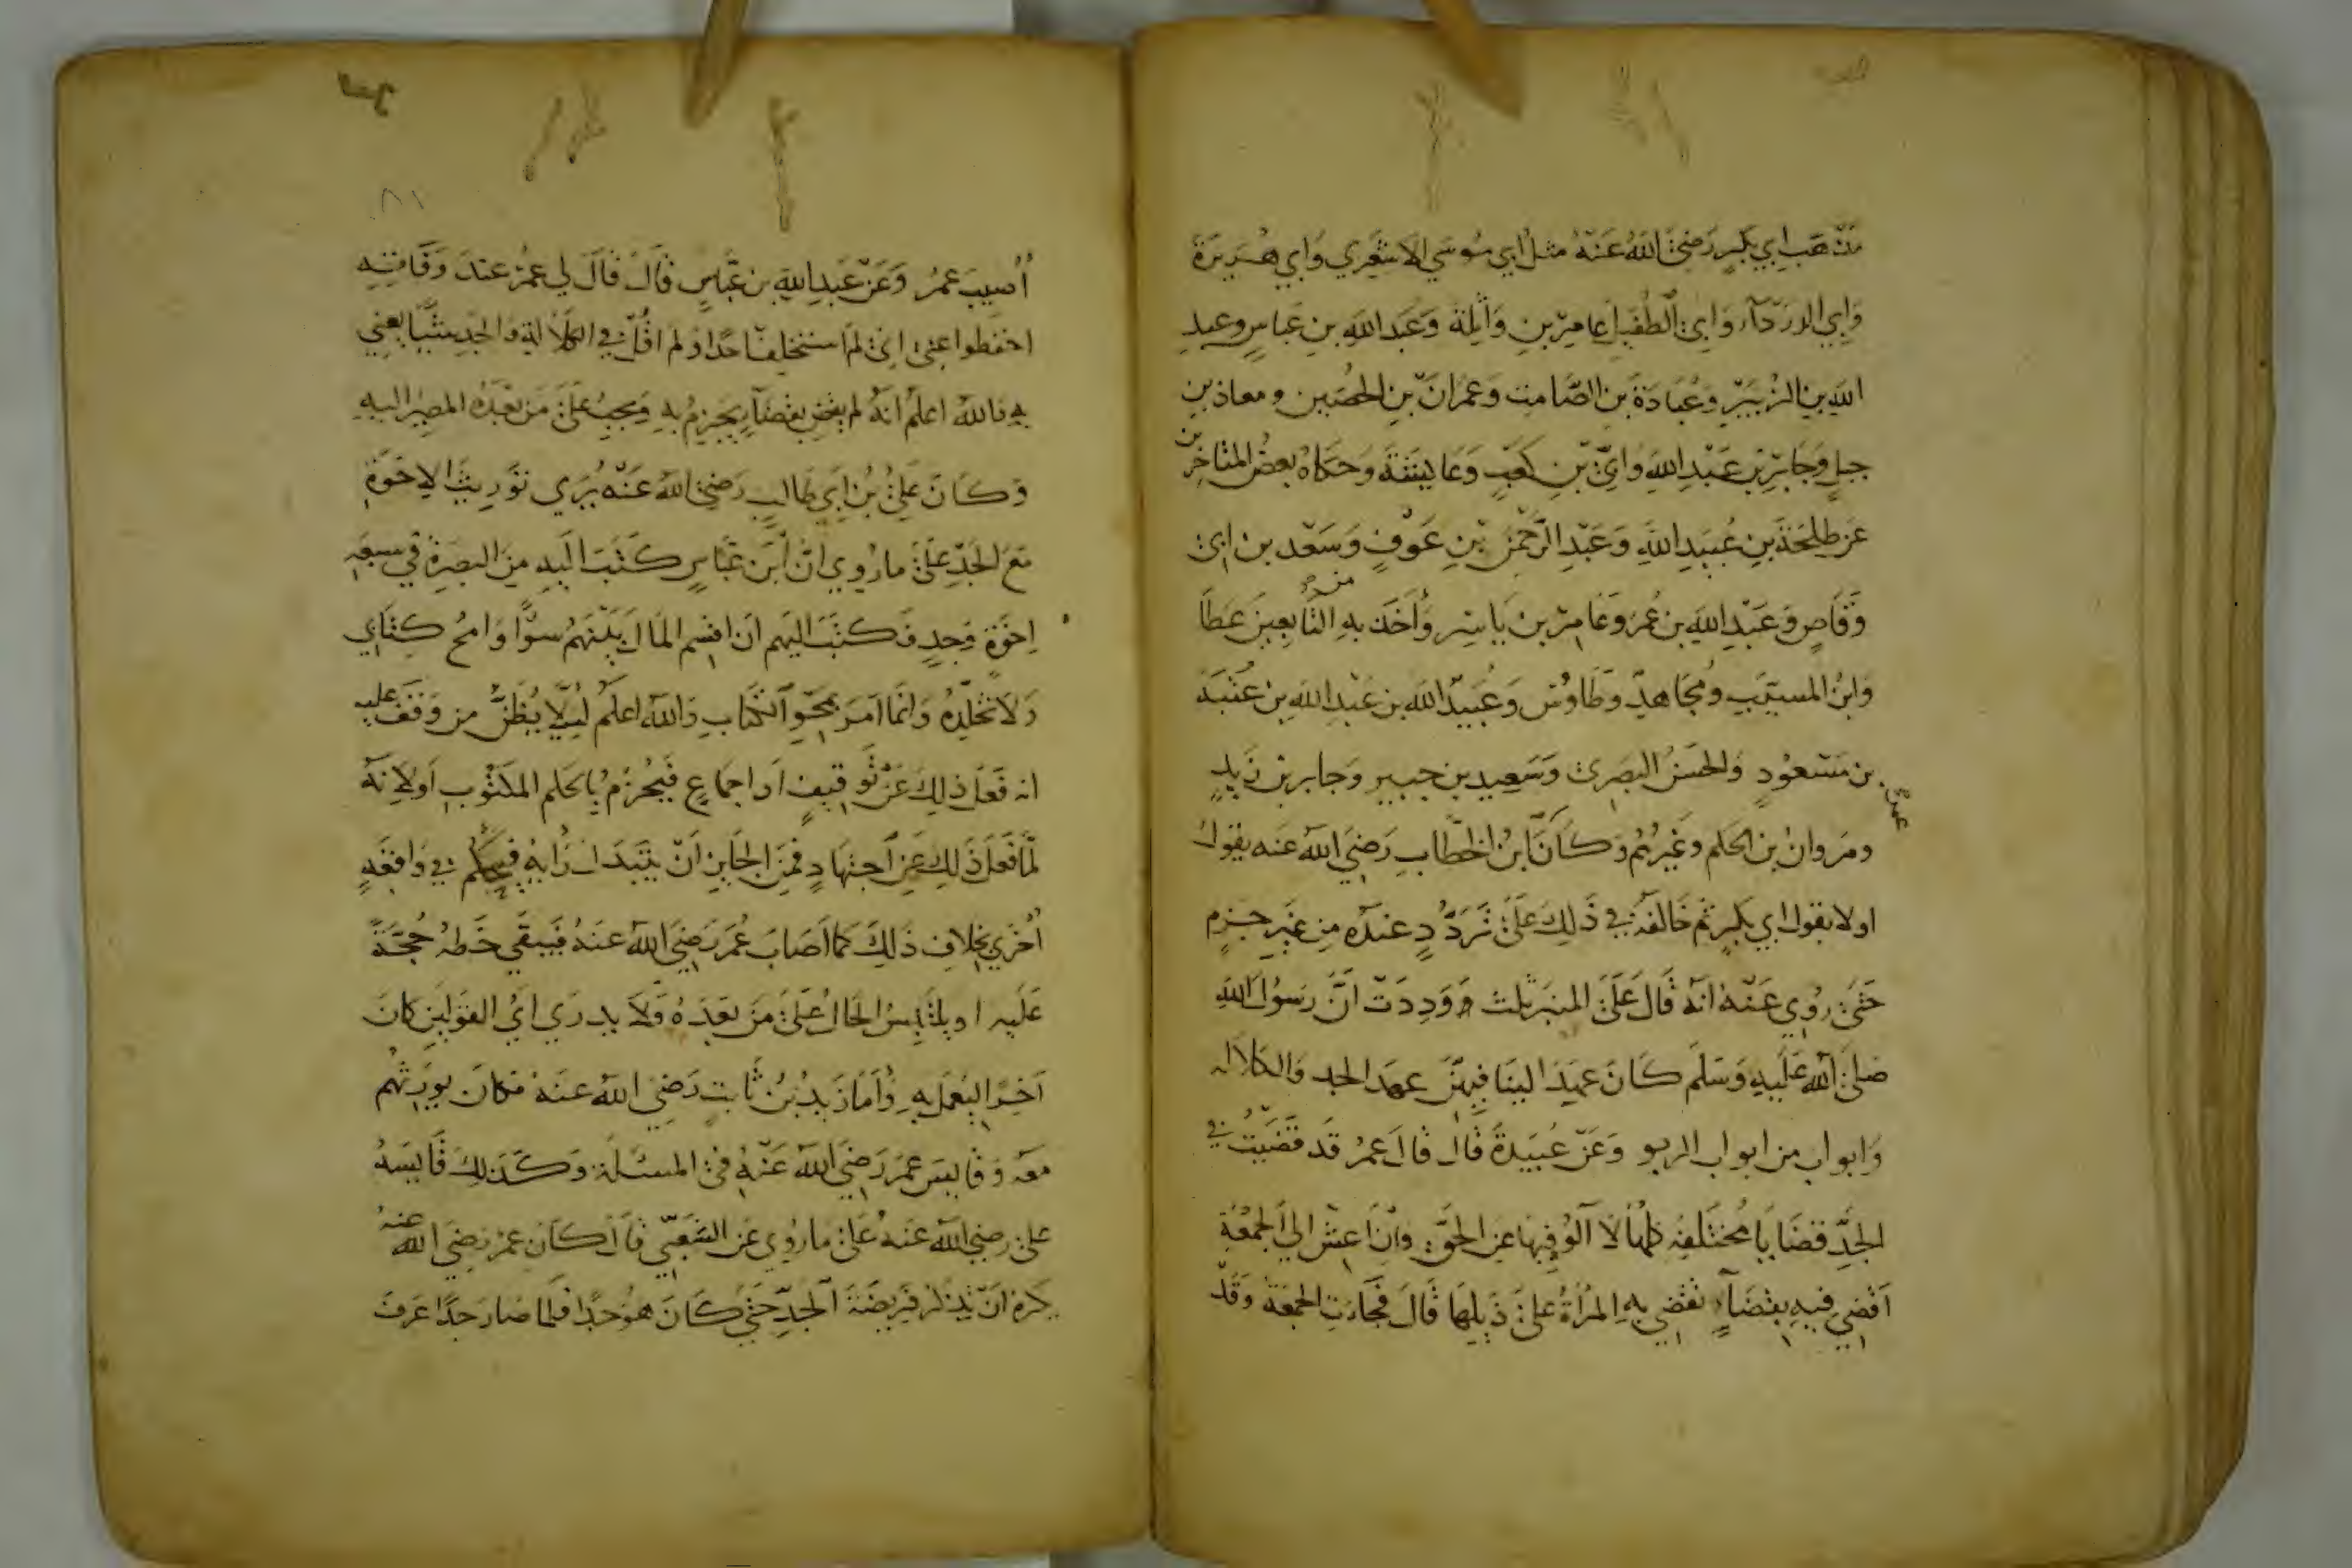 مَذْهَب ابي بَكرٍ رَضِيَ اللهُ عَنْهُ مثل ابي مُوسَي الاشعَري وَابي هُرَيرَة
وَابي الدردَآءِ وَابي الطُفَيل عامِر بنِ وَاثِلة وَعَبد اللهِ بنِ عَباسٍ وعبدِ
اللهِ بنِ الزُبَيْرِ وَعُبَادَةَ بن الصَّامت وَعمرَانَ بنِ الحُصَين ومعاذ بنِ
جبلٍ وَجَابِرِ بْن عَبْدِ اللهِ وَابيِّ بْنِ كَعْبٍ وَعَايشَةَ وَحَكاهُ بعضُ المتاخرين
عَن طلحَةَ بنِ عُبَيدِ اللهِ وَعَبْدِ الرَّحْمَنِ بْنِ عَوْفٍ وَسَعْد بن ابي
وَقّاصٍ وَعَبْدِ اللهِ بن عُمَر وَعَامِر بن يَاسِر وَأَخَذَ بهِ من التَّابعِينَ عَطَا
وَابنُ المسيّبِ ومُجَاهدٌ وَطَاوُس وَعُبَيْدُ اللهِ بن عَبْدِ اللهِ بن عُتْبَة
بن مَسْعُودٍ وَالحَسَنُ البَصرِي وَسَعِيد بن جبيرٍ وَجَابر بن زَيدٍ
ومَروانُ بن الحَكم وَغَيْرُهُم وَكَانَ عمر ابنُ الخَطّابِ رَضِيَ اللهُ عَنه يقولُ
اولا بقول ابي بَكرٍ ثم خَالفَهُ في ذَلِكَ عَلَى تَرَدُّدٍ عندَهُ مِن غَيرِ جزمٍ
حَتَى رُوِي عَنْهُ انهُ قَالَ عَلَى المنبَر ثلاث وَدِدَتُ انَّ رَسُولَ اللهِ
صَلى اللهُ عَلَيهِ وَسَلَم كَانَ عَهِدَ الينَا فِيهِنّ عهدَا الجد وَالكلاله
وَابواب من ابواب الربو وَعَنْ عُبَيدَةَ قَال قالَ عمرُ قَد قضَيتُ في
الجَدِّ قضَايَا مُختَلِفَه كلهَا لَا آلُو فيهَا عَن الحَقِّ وَان اعِش الي الجمُعَةِ
اقضِي فِيهِ بقَضَآءٍ تقضي بهِ المرْأةُ علَى ذَيلِهَا قَالَ فَجَاءَتِ الجمعَة وَقَدْ
٨١
أُصِيبَ عمَرُ وَعَنْ عَبدِ اللهِ بن عَبَّاسٍ قَالَ قَالَ لي عمَرُ عندَ وَفَاتِهِ
احفظوا عنيِّ انِي لَم استخلِف احدًا وَلم اقُلْ في الكَلَالةِ وَالجدِ شيئًا يعني
بهِ فاللهُ اعلمُ انهُ لم يقضِ بقضآءٍ يَجزِمُ بهِ وَيجِبُ عَلَى مَن بَعْدَهُ المصِيرُ اليهِ
وَكَانَ عَلِيُّ بْنُ ابَي طَالبٍ رَضِيَ اللهُ عَنْه يُرَي تَوْرِيثَ الاخوَة
مَعَ الجَدِّ عَلَى ما رُوِي انَّ ابْن عَبَّاسٍ كَتَبَ الَيهِ مِنَ البَصْرَةِ في سبعَة
اِخوَةٍ وَجدٍ فَكَتَبَ اليهم ان اقسِم المَال بَيْنَهُم سوًّا وَامحُ كِتَابي
وَلَا تُخلّدهُ وَانّمَا امَرَ بمَحْوِ الكِتَابِ وَاللهُ اعلَم لِيَلَّا يُظَنُّ مِن وَقفَ عليه
انه فَعَلَ ذَلِكَ عَنْ تَوقيفٍ اَو اجمَاعٍ فَيُجزَمُ بالحُكم المَكتُوبِ اَو لانهُ
لمّا فَعَلَ ذَلِكَ عَنِ اجتهَادٍ فمِنَ الجَايزِ انْ يتَبَدَّل رَأيه فيحكم في وَاقعَةٍ
أُخرَي بخِلافِ ذَلِكَ كمَا اصَابَ عُمَر رَضِيَ اللهُ عَنهُ فَيَبقَي خَطهُ حُجَّةً
عَلَيه او يلتَبِسُ الحَالُ عَلَى مَنْ بَعدَهُ وَلَا يدرَي ايُّ القَوَلينِ كانَ
آخِرًا لِيُعمَل بهِ وَأمَّا زَيدُ بنُ ثَابت رَضِيَ اللهُ عنهُ فكان يورّثهم
معَه وَقَايسَ عمَر رَضِيَ اللهُ عَنْهُ في المسئلَة وَكَذَلكَ قَايسَهُ
علي رضيَ اللهُ عَنهُ عَلَى ما رُوِي عَن الشَّعبيّ قَالَ كَانَ عمَر رَضِيَ اللهُ عنهُ
يكرهُ انْ يَذكرَ فَرِيضَةَ الجَدِّ حَتَى كَانَ هوُ جَدًا فلَما صَارَ جَدًّا عَرفَ